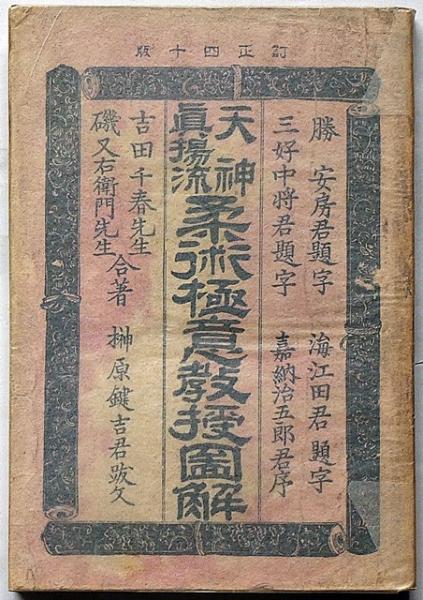 訂正四十版
勝 安房君題字 海江田君題字
三好中将君題字 嘉納治五郎君序
天神
眞揚流
柔術極意教授圖解
吉田千春先生
磯又右衛門先生
合著 榊原鍵吉君跋文